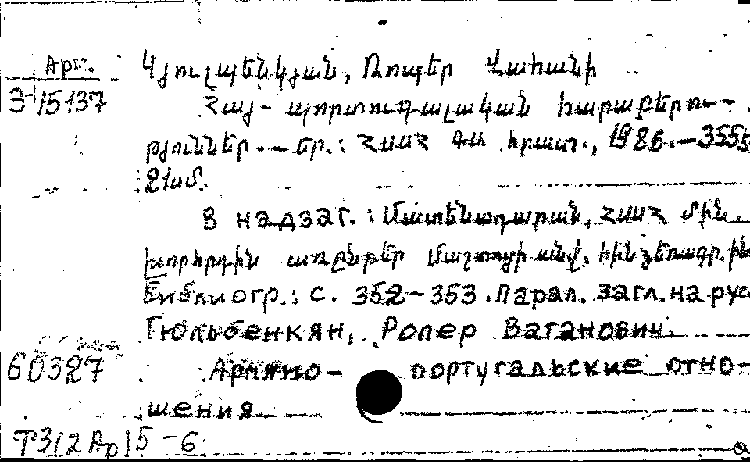 Арм.
Կյուլպենկյան, Ռոպեր Վահանի
Э-15137
Հայ-պորտուգալական հարաբերու-
թյուններ.—Եր.: ՀՍՍՀ ԳԱ հրատ., 1986.—355
21սմ.
В надзаг.: Մատենադարան, ՀՍՍՀ մին.
խորհրդին առընթեր Մաշտոցի անվ. հին ձեռագր. ին
Библиогр.: с. 352-353. Парал. загл. на рус
Гюльбенкян, Ропер Ваганович.
60327 Армяно-португальские отно-
шения
Т3(2Ар)5-6